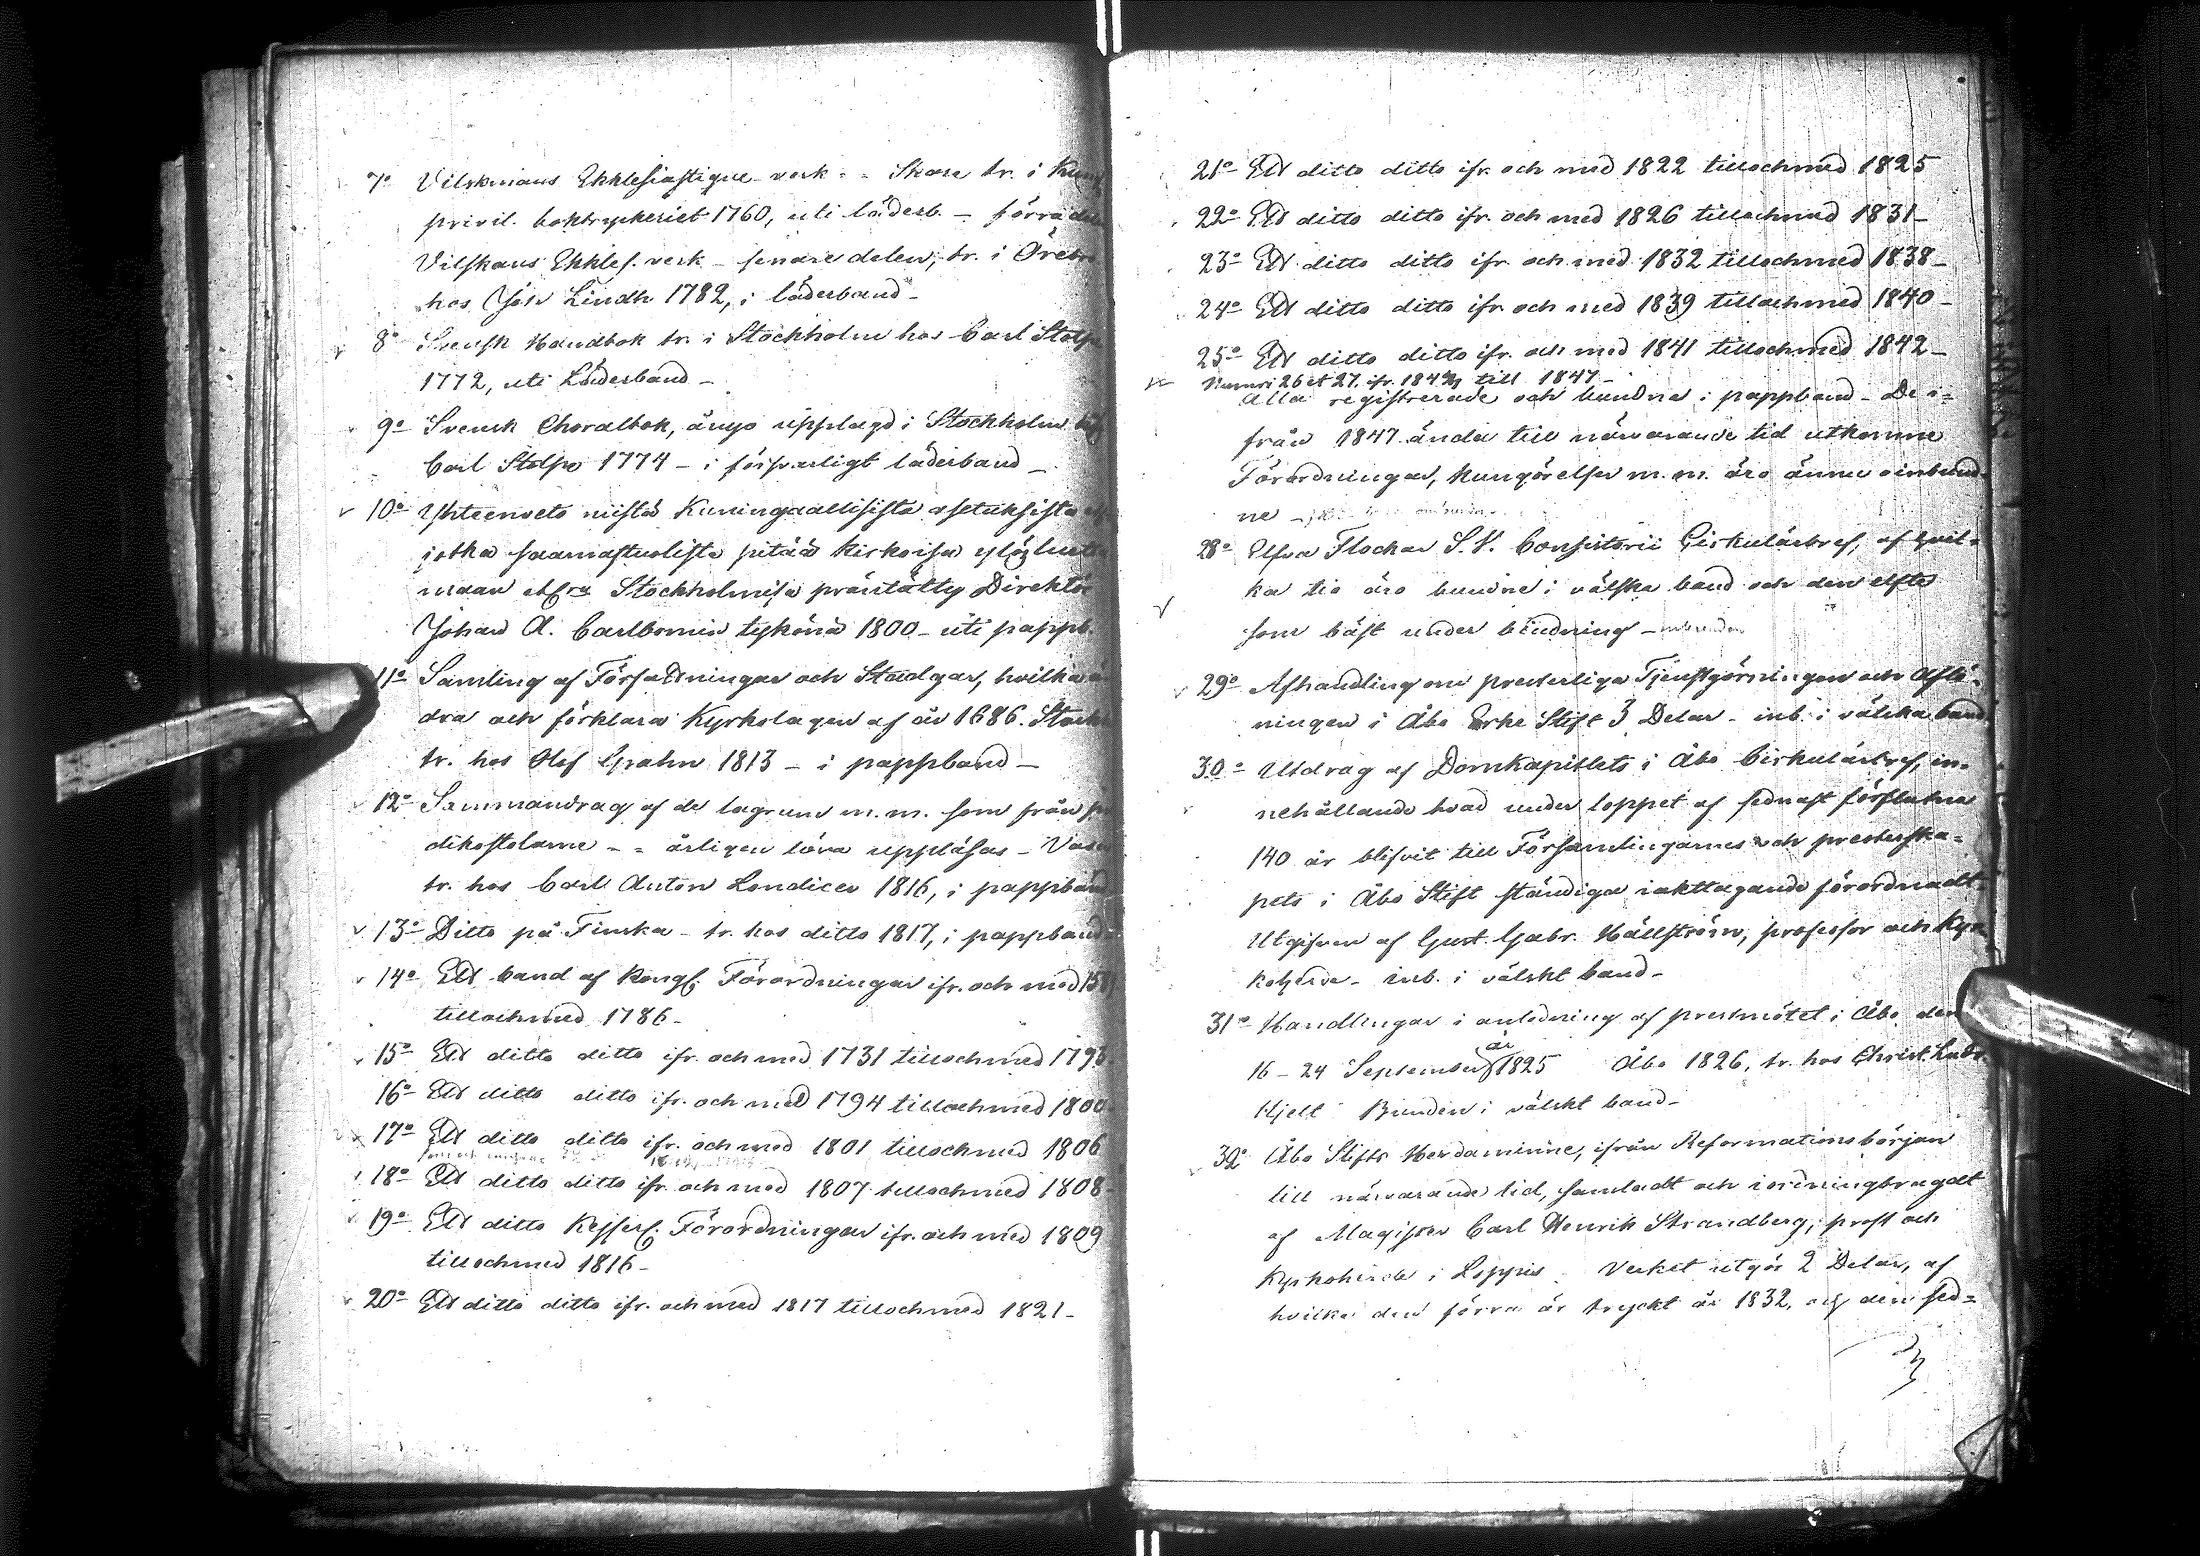 7o Vilskmans Ekklesiastique verk - - Skara tr. i
privil. boktryckeriet 1760, uti läderb. -
Vilskans Ekkles. verk - senare delen, tr. i Örebro
hos Joh Lindh 1782, i läderband -
8o Svensk Handbok tr. i Stockholm hos Carl Stolpe
1772, uti Läderband -
9o Svensk Choralbok, ånyo upplagd i Stockholm
Carl Stolpe 1774 - i försvarligt läderband -
10o Yhteenveto niistä Kuningaallisista asetuksista
jotka saarnastuolista pitää kirkoisa
maan etc Stockholmisa präntätty Direktör
Johan A. Carlbomin tykönä 1800 - uti pappb.
11o Samling af Författningar och Stadgar, hvilka
dra och förklara Kyrkolagen af år 1686. Stockh
tr. hos Olof Grahn 1813 - i pappband -
12o Sammandrag af de lagrum m.m. som från
dikostolarne - - årligen böra uppläsas -
tr. hos Carl Anton Londicer 1816, i pappband
13o Ditto på Finska - tr. hos ditto 1817, i pappband
14o Ett band af Kongl. Förordningar ifr. och med
tillochmed 1786 -
15o Ett ditto ditto ifr. och med 1731 tillochmed 1793
16o Ett ditto ditto ifr. och med 1794 tillochmed 1800
17o Ett ditto ditto ifr. och med 1801 tillochmed 1806
18o Ett ditto ditto ifr. och med 1807 tillochmed 1808 -
19o Ett ditto Kejserl. Förordningar ifr. och med 1809
tillochmed 1816 -
20o Ett ditto ditto ifr. och med 1817 tillochmed 1821 -
21o Ett ditto ditto ifr. och med 1822 tillochmed 1825
22o Ett ditto ditto ifr. och med 1826 tillochmed 1831 -
23o Ett ditto ditto ifr. och med 1832 tillochmed 1838 -
24o Ett ditto ditto ifr. och med 1839 tillochmed 1840 -
25o Ett ditto ditto ifr. och med 1841 tillochmed 1842 -
Numri 26 et 27. ifr. till 1847 -
Alla registrerade och bundna i pappband - De i=
från 1847 ända till närvarande tid utkomne
Förordningar, Kungörelser m. m. äro ännu oinbund
ne -
28o Elfva Flockar S. V. Consistorii Cirkulärbref, af hvil=
ka tio äro bundne i välska band och den elfte
som bäst under bindning -
29o Afhandling om presterliga Tjenstgörningen och Aflö=
ningen i Åbo Erke Stift 3 Delar - inb. i välska band
30o Utdrag af Domkapitlets i Åbo Cirkulärbref, in=
nehållande hvad under loppet af sednast förflutna
140 år blifvit till Församlingarnes och presterska=
pets i Åbo Stift ständiga iakttagande förordnadt
Utgifven af Gust. Gabr. Hällström, professor och Kyr
koherde - inb. i välskt band -
31o Handlingar i anledning af prestmötet i Åbo den
16 - 24 September år 1825 Åbo 1826, tr. hos Christ. Ludv.
Hjelt Bunden i välskt band -
32o Åbo Stifts Herdaminne, ifrån Reformationsbörjan
till närvarande tid, samladt och i ordning bragdt
af Magister Carl Henrik Strandberg, prost och
Kyrkoherde i Loppis. Verket utgör 2 Delar, af
hvilka den förra är tryckt år 1832, och den sed=